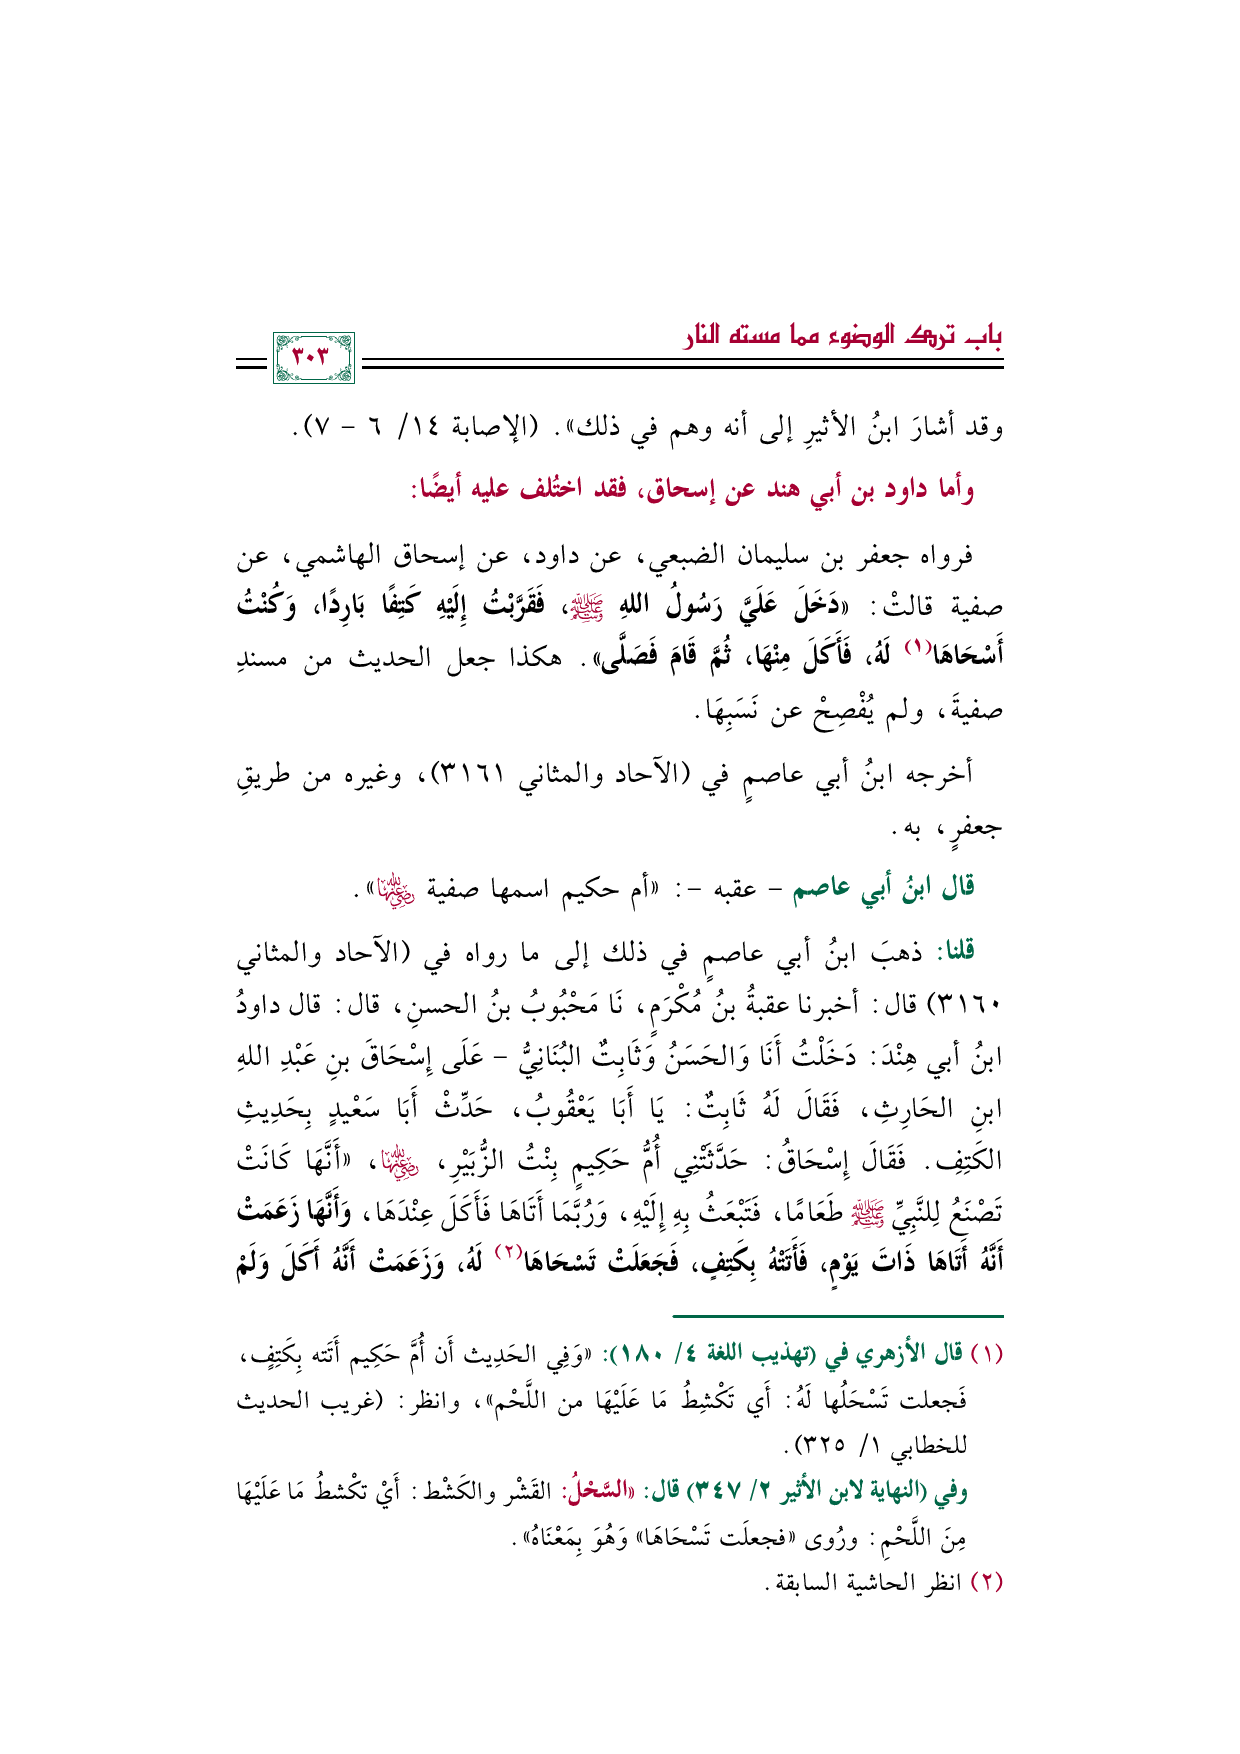 باب ترك الوضوء مما مسته النار
٣٠٣
وقد أشارَ ابنُ الأثيرِ إلى أنه وهم في ذلك». (الإصابة ١٤/ ٦ - ٧).
وأما داود بن أبي هند عن إسحاق، فقد اختُلف عليه أيضًا:
فرواه جعفر بن سليمان الضبعي، عن داود، عن إسحاق الهاشمي، عن
صفية قالتْ: «دَخَلَ عَلَيَّ رَسُولُ اللهِ ﷺ، فَقَرَّبْتُ إِلَيْهِ كَتِفًا بَارِدًا، وَكُنْتُ
أَسْحَاهَا(١) لَهُ، فَأَكَلَ مِنْهَا، ثُمَّ قَامَ فَصَلَّى». هكذا جعل الحديث من مسندِ
صفيةَ، ولم يُفْصِحْ عن نَسَبِهَا.
أخرجه ابنُ أبي عاصمٍ في (الآحاد والمثاني ٣١٦١)، وغيره من طريقِ
جعفرٍ، به.
قال ابنُ أبي عاصم - عقبه -: «أم حكيم اسمها صفية رضي الله عنها».
قلنا: ذهبَ ابنُ أبي عاصمٍ في ذلك إلى ما رواه في (الآحاد والمثاني
٣١٦٠) قال: أخبرنا عقبةُ بنُ مُكْرَمٍ، نَا مَحْبُوبُ بنُ الحسنِ، قال: قال داودُ
ابنُ أبي هِنْدَ: دَخَلْتُ أَنَا وَالحَسَنُ وَثَابِتٌ البُنَانِيُّ - عَلَى إِسْحَاقَ بنِ عَبْدِ اللهِ
ابنِ الحَارِثِ، فَقَالَ لَهُ ثَابِتٌ: يَا أَبَا يَعْقُوبُ، حَدِّثْ أَبَا سَعْيِدٍ بِحَدِيثِ
الكَتِفِ. فَقَالَ إِسْحَاقُ: حَدَّثَتْنِي أُمُّ حَكِيمٍ بِنْتُ الزُّبَيْرِ، رضي الله عنها، «أَنَّهَا كَانَتْ
تَصْنَعُ لِلنَّبِيِّ ﷺ طَعَامًا، فَتَبْعَثُ بِهِ إِلَيْهِ، وَرُبَّمَا أَتَاهَا فَأَكَلَ عِنْدَهَا، وَأَنَّهَا زَعَمَتْ
أَنَّهُ أَتَاهَا ذَاتَ يَوْمٍ، فَأَتَتْهُ بِكَتِفٍ، فَجَعَلَتْ تَسْحَاهَا(٢) لَهُ، وَزَعَمَتْ أَنَّهُ أَكَلَ وَلَمْ
(١) قال الأزهري في (تهذيب اللغة ٤/ ١٨٠): «وَفِي الحَدِيث أَن أُمَّ حَكِيم أَتَته بِكَتِفٍ،
فَجعلت تَسْحَلُها لَهُ: أَي تَكْشِطُ مَا عَلَيْهَا من اللَّحْم»، وانظر: (غريب الحديث
للخطابي ١/ ٣٢٥).
وفي (النهاية لابن الأثير ٢/ ٣٤٧) قال: «السَّحْلُ: القَشْر والكَشْط: أَيْ تكْشطُ مَا عَلَيْهَا
مِنَ اللَّحْمِ: ورُوى «فجعلَت تَسْحَاهَا» وَهُوَ بِمَعْنَاهُ».
(٢) انظر الحاشية السابقة.